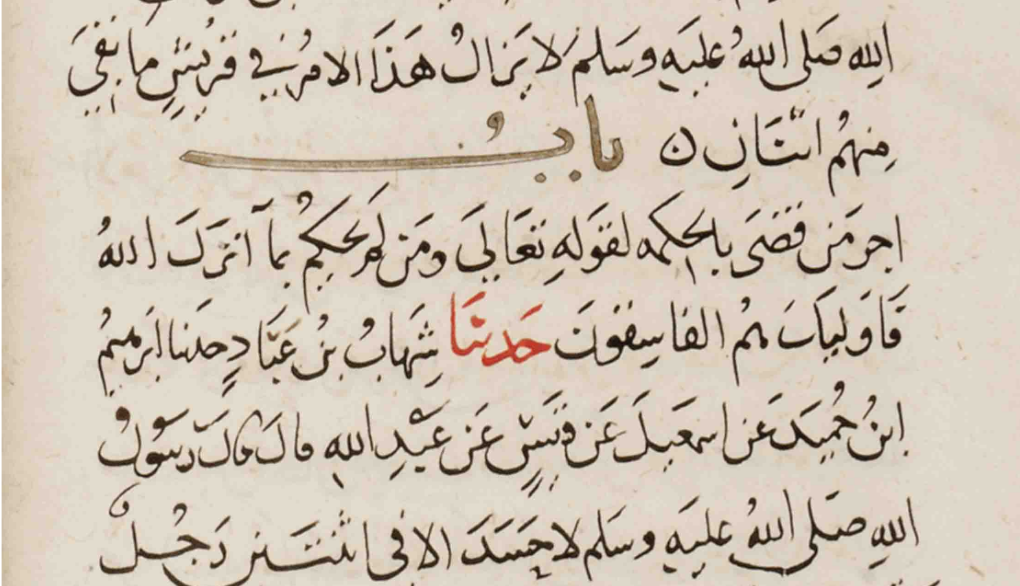 الله صَلى اللهُ عليَه وسَلم لا يَزالُ هَذَا الامرُ في قريشٍ ما بَقيَ
مِنهُم اثنَانِ ن
بابُ
اجر مَن قضَى بالحكمه لقولهِ تعَالَي ومَن لم يَحكُم بمآ انزَلَ اللهُ
فَاوليكَ هُم الفاسِقونَ حَدثنَا شِهابُ بنُ عبَّادٍ حدثنا ابرهيمُ
ابنُ حُميدَ عَن اسمعيلَ عَن قيَسٍ عَن عَبَدِ الله قالَ قالَ رسَوُلُ
اللهِ صَلى اللهُ عليَه وسَلم لا حَسَدَ الا في اثنتَين رَجُلٌ